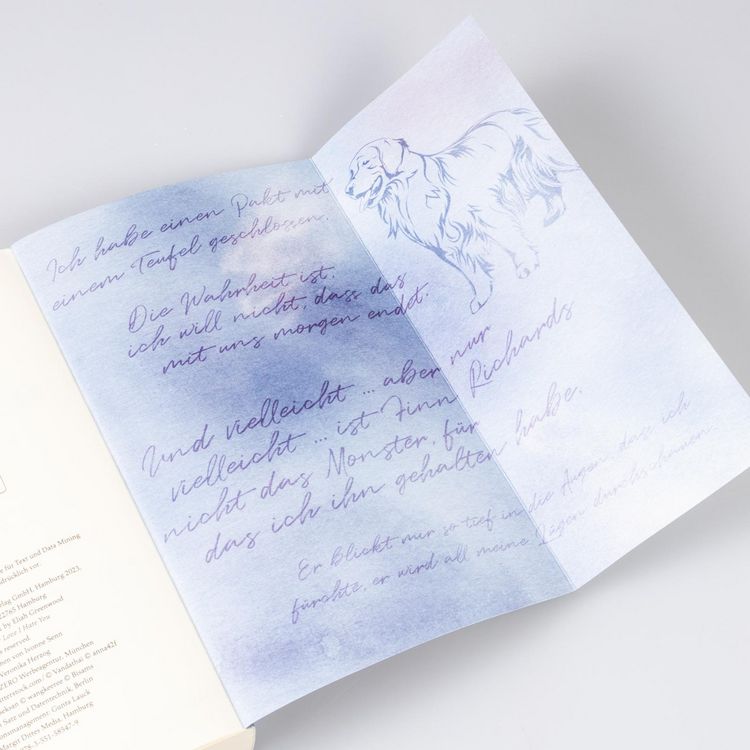 Ich habe einen Pakt mit
einem Teufel geschlossen.
Die Wahrheit ist,
ich will nicht, dass das
mit uns morgen endet.
Und vielleicht ... aber nur
vielleicht ... ist Finn Richards
nicht das Monster, für
das ich ihn gehalten habe.
Er blickt mir so tief in die Augen, dass ich
fürchte, er wird all meine Lügen durchschauen.
e für Text und Data Mining
drücklich vor.
lag GmbH, Hamburg 2023,
22765 Hamburg
by Eliah Greenwood
Love I Hate You
s reserved.
nen von Ivonne Senn
Veronika Herzog
ZERO Werbeagentur, München
tterstock.com / © Vandathai © anna42f
eksan © wangkeeree © Bisams
Satz und Datentechnik, Berlin
ionsmanagement: Gunta Lauck
Margit Dittes Media, Hamburg
978-3-551-58547-9